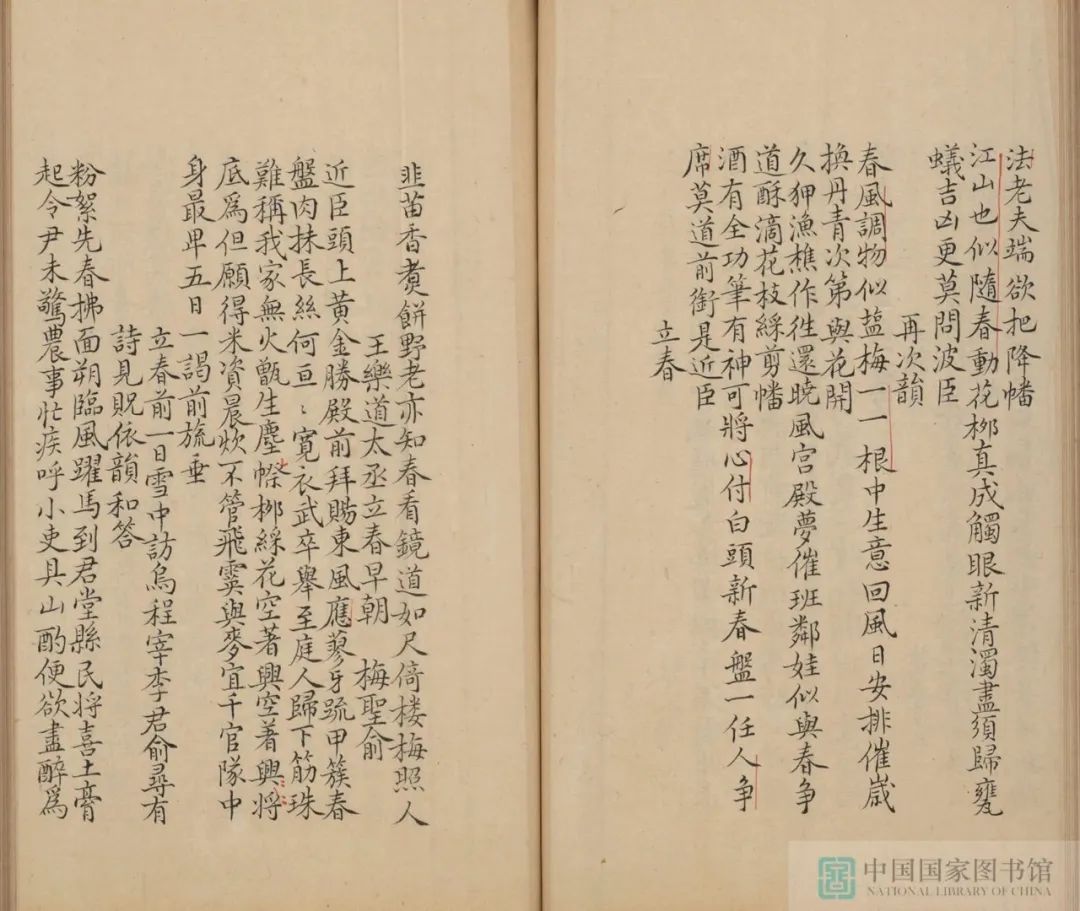 法老夫端欲把降幡
江山也似隨春動花栁真成觸眼新清濁盡須歸甕
蟻吉凶更莫問波臣
再次韻
春風調物似盐梅一一根中生意回風日安排催歲
換丹青次第與花開
久狎漁樵作徃還曉風宮殿夢催班鄰娃似與春争
道酥滴花枝綵剪幡
酒有全功筆有神可將心付白頭新春盤一任人争
席莫道前銜是近臣
立春
韭苗香煑餅野老亦知春看鏡道如尺倚楼梅照人
王樂道太丞立春早朝 梅聖俞
近臣頭上黄金勝殿前拜賜東風應蓼牙䟽甲簇春
盤肉抹長絲何亘〻寛衣武卒舉至庭人歸下筋珠
難稱我家無火甑生塵幐栁綵花空著興空著興将
底爲但願得米資晨炊不管飛霙與麥宜千官隊中
身最卑五日一謁前旒垂
立春前一日雪中訪烏程宰李君俞尋有
詩見貺依韻和答
粉絮先春拂面朔臨風躍馬到君堂縣民将喜土膏
起令尹未驚農事忙疾呼小吏具山酌便欲盡醉爲
中国国家图书馆
NATIONAL LIBRARY OF CHINA